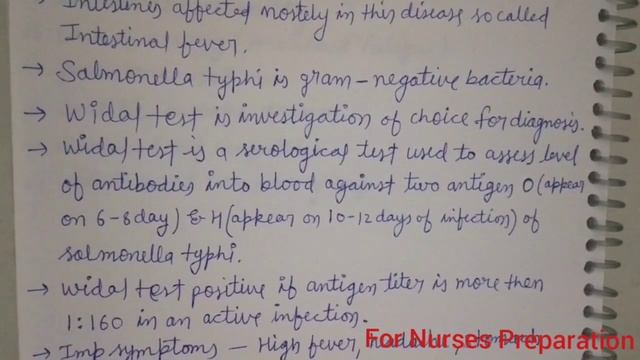 Intestines affected mostely in this disease so called
Intestinal fever.
→ Salmonella typhi is gram-negative bacteria.
→ Widal test is investigation of choice for diagnosis.
→ Widal test is a serological test used to assess level
of antibodies into blood against two antigen O(appear
on 6-8day) & H(appear on 10-12days of infection) of
salmonella typhi.
→ widal test positive if antigen titer is more then
1:160 in an active infection.
→ Imp symptoms - High fever,
For Nurses Preparation